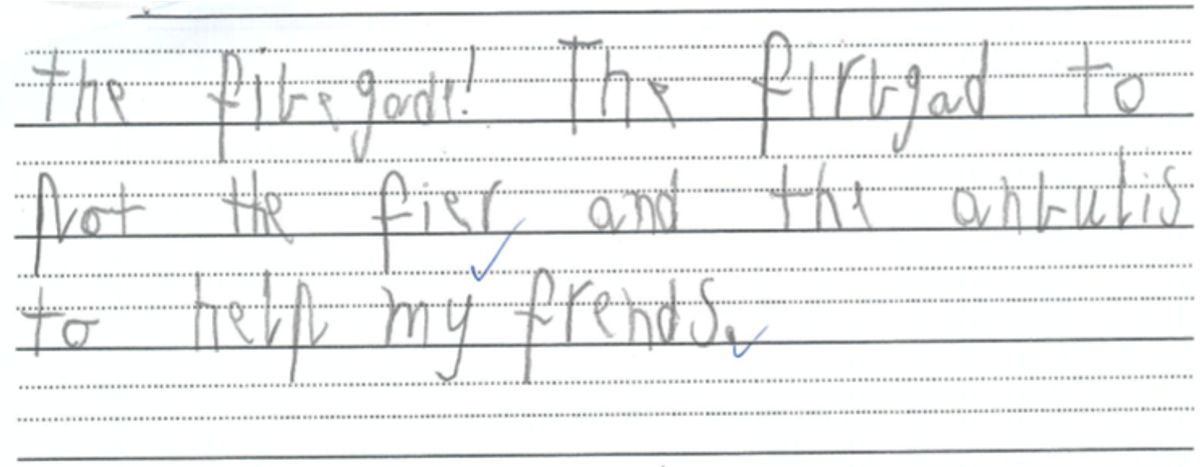 the fibegade! The firbgad to
Not the fier and the anbulis
to help my frends.